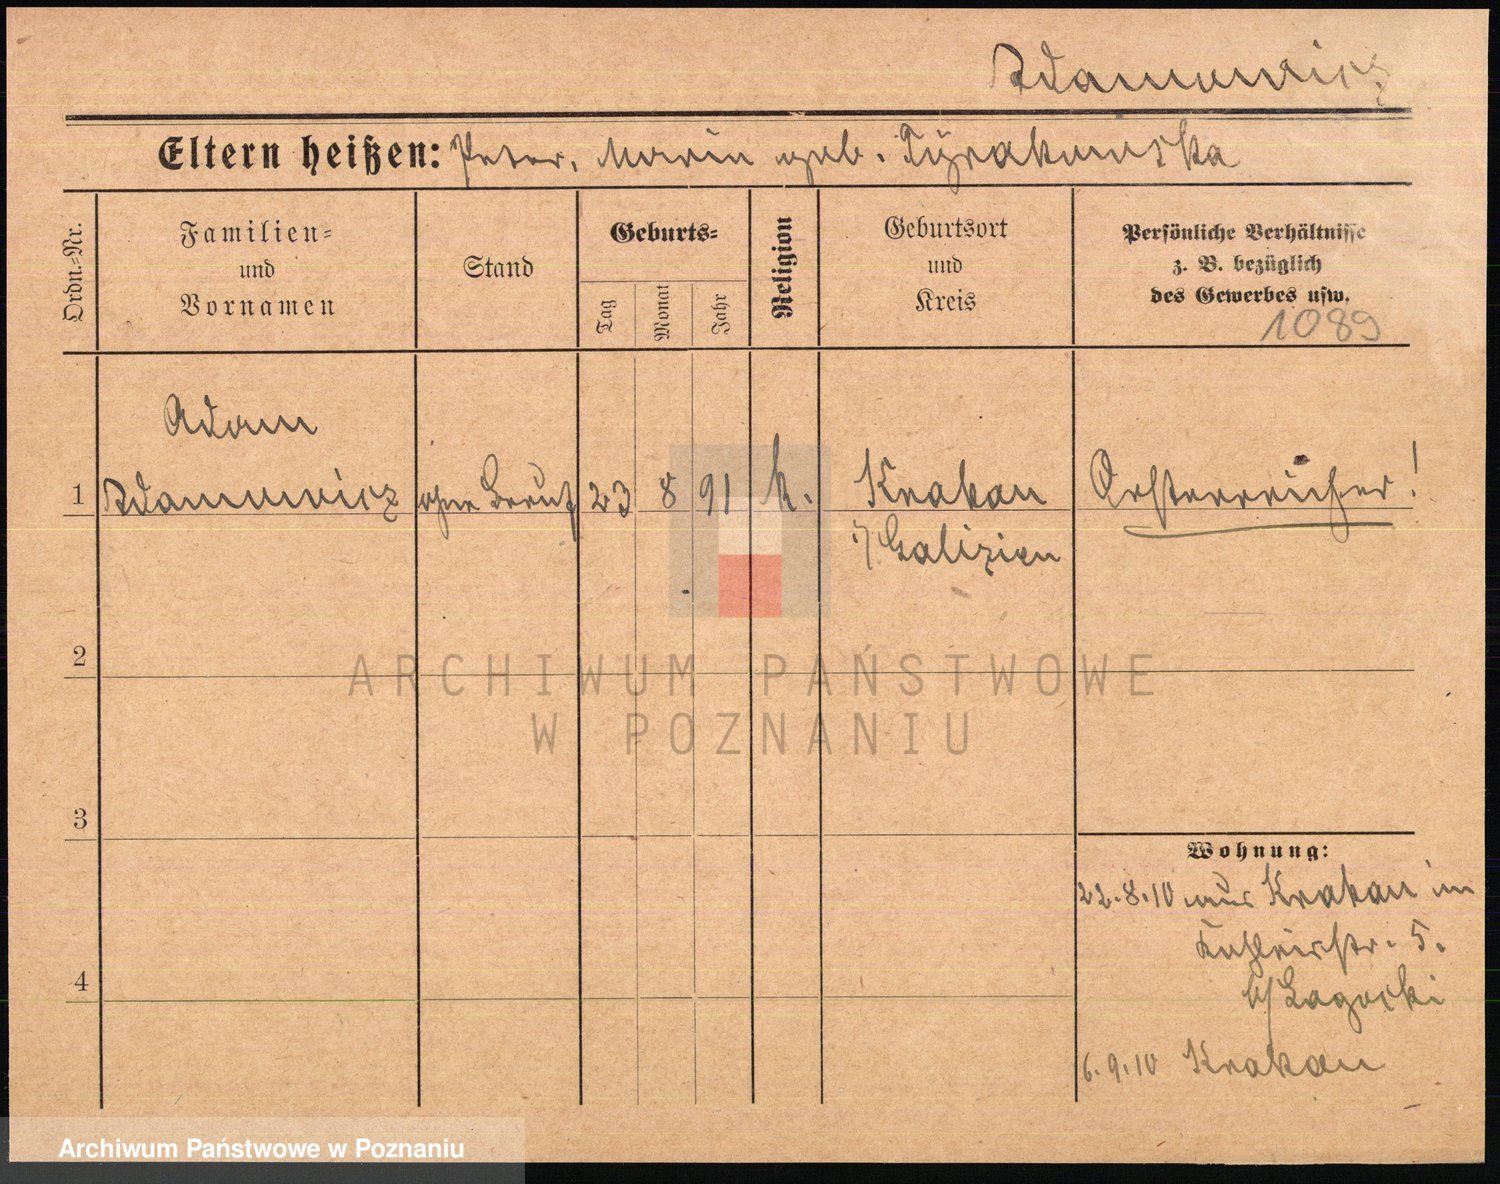 Adamowicz
Eltern heißen: Peter, Maria geb. Tyrakowska
Ordn.-Nr.
Familien-
und
Vornamen
Stand
Geburts-
Tag
Monat
Jahr
Religion
Geburtsort
und
Kreis
Persönliche Verhältnisse
z. B. bezüglich
des Gewerbes usw.
1089
Adam
1 Adamowicz ohne Beruf 23 8 91 k. Krakau Oesterreicher!
i/ Galizien
2
ARCHIWUM PAŃSTWOWE
W POZNANIU
3
Wohnung:
22.8.10 aus Krakau in
5.
4
b/ Lagocki
6.9.10 Krakau
Archiwum Państwowe w Poznaniu